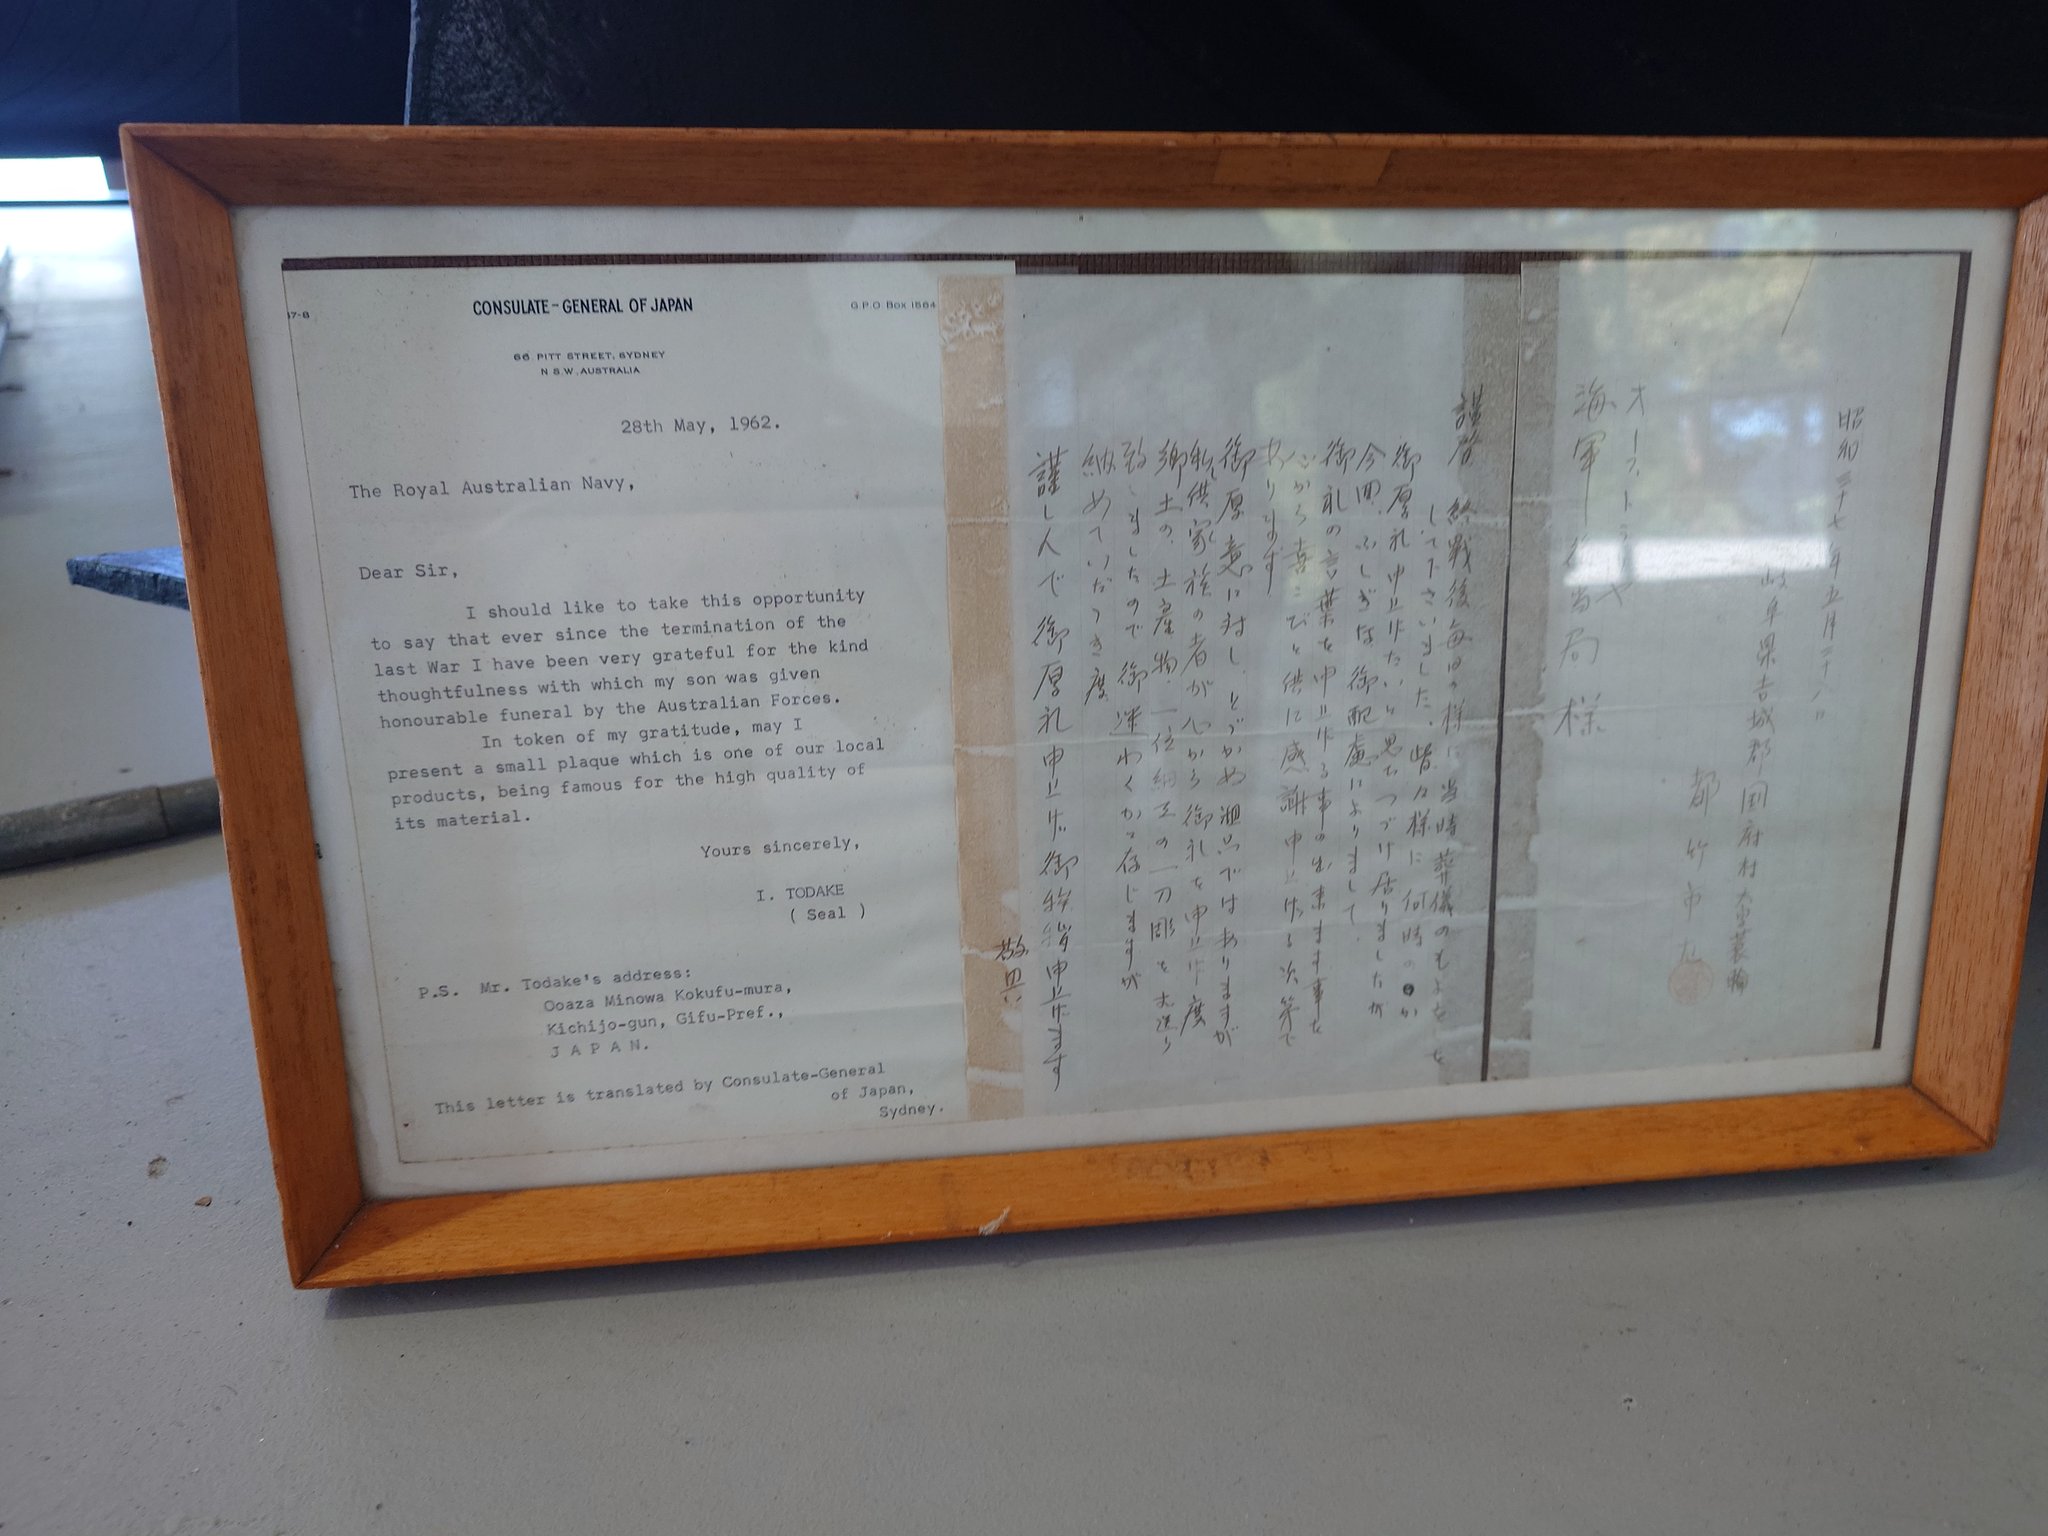 17-8
CONSULATE-GENERAL OF JAPAN
G.P.O. Box 1564
66 PITT STREET, SYDNEY
N.S.W. AUSTRALIA
28th May, 1962.
The Royal Australian Navy,
Dear Sir,
I should like to take this opportunity
to say that ever since the termination of the
last War I have been very grateful for the kind
thoughtfulness with which my son was given
honourable funeral by the Australian Forces.
In token of my gratitude, may I
present a small plaque which is one of our local
products, being famous for the high quality of
its material.
Yours sincerely,
I. TODAKE
( Seal )
P.S. Mr. Todake's address:
Ooaza Minowa Kokufu-mura,
Kichijo-gun, Gifu-Pref.,
J A P A N.
This letter is translated by Consulate-General
of Japan,
Sydney.
昭和三十七年五月二十八日
岐阜県吉城郡国府村大字蓑輪
都竹市
オーストラリヤ
海軍 当局 様
謹啓 終戦後毎日の様に当時葬儀のもよをを
して下さいました皆々様に何時の か
御厚礼申上げたいと思ひつづけ居りましたが
今回、ふしぎな御配慮によりまして、
御礼の言葉を申上げる事の出来ます事を
心から喜こびと供に感謝申上げる次第で
あります
御厚意に対し、とづかぬ粗品ではありますが
私供家族の者が心から御礼を申上げ度
郷土の土産物、一位細工の一刀彫を お送り
致しましたので御迷わくかと存じますが
納めていただき度
謹しんで御厚礼申上げ御挨拶申上げます
敬具